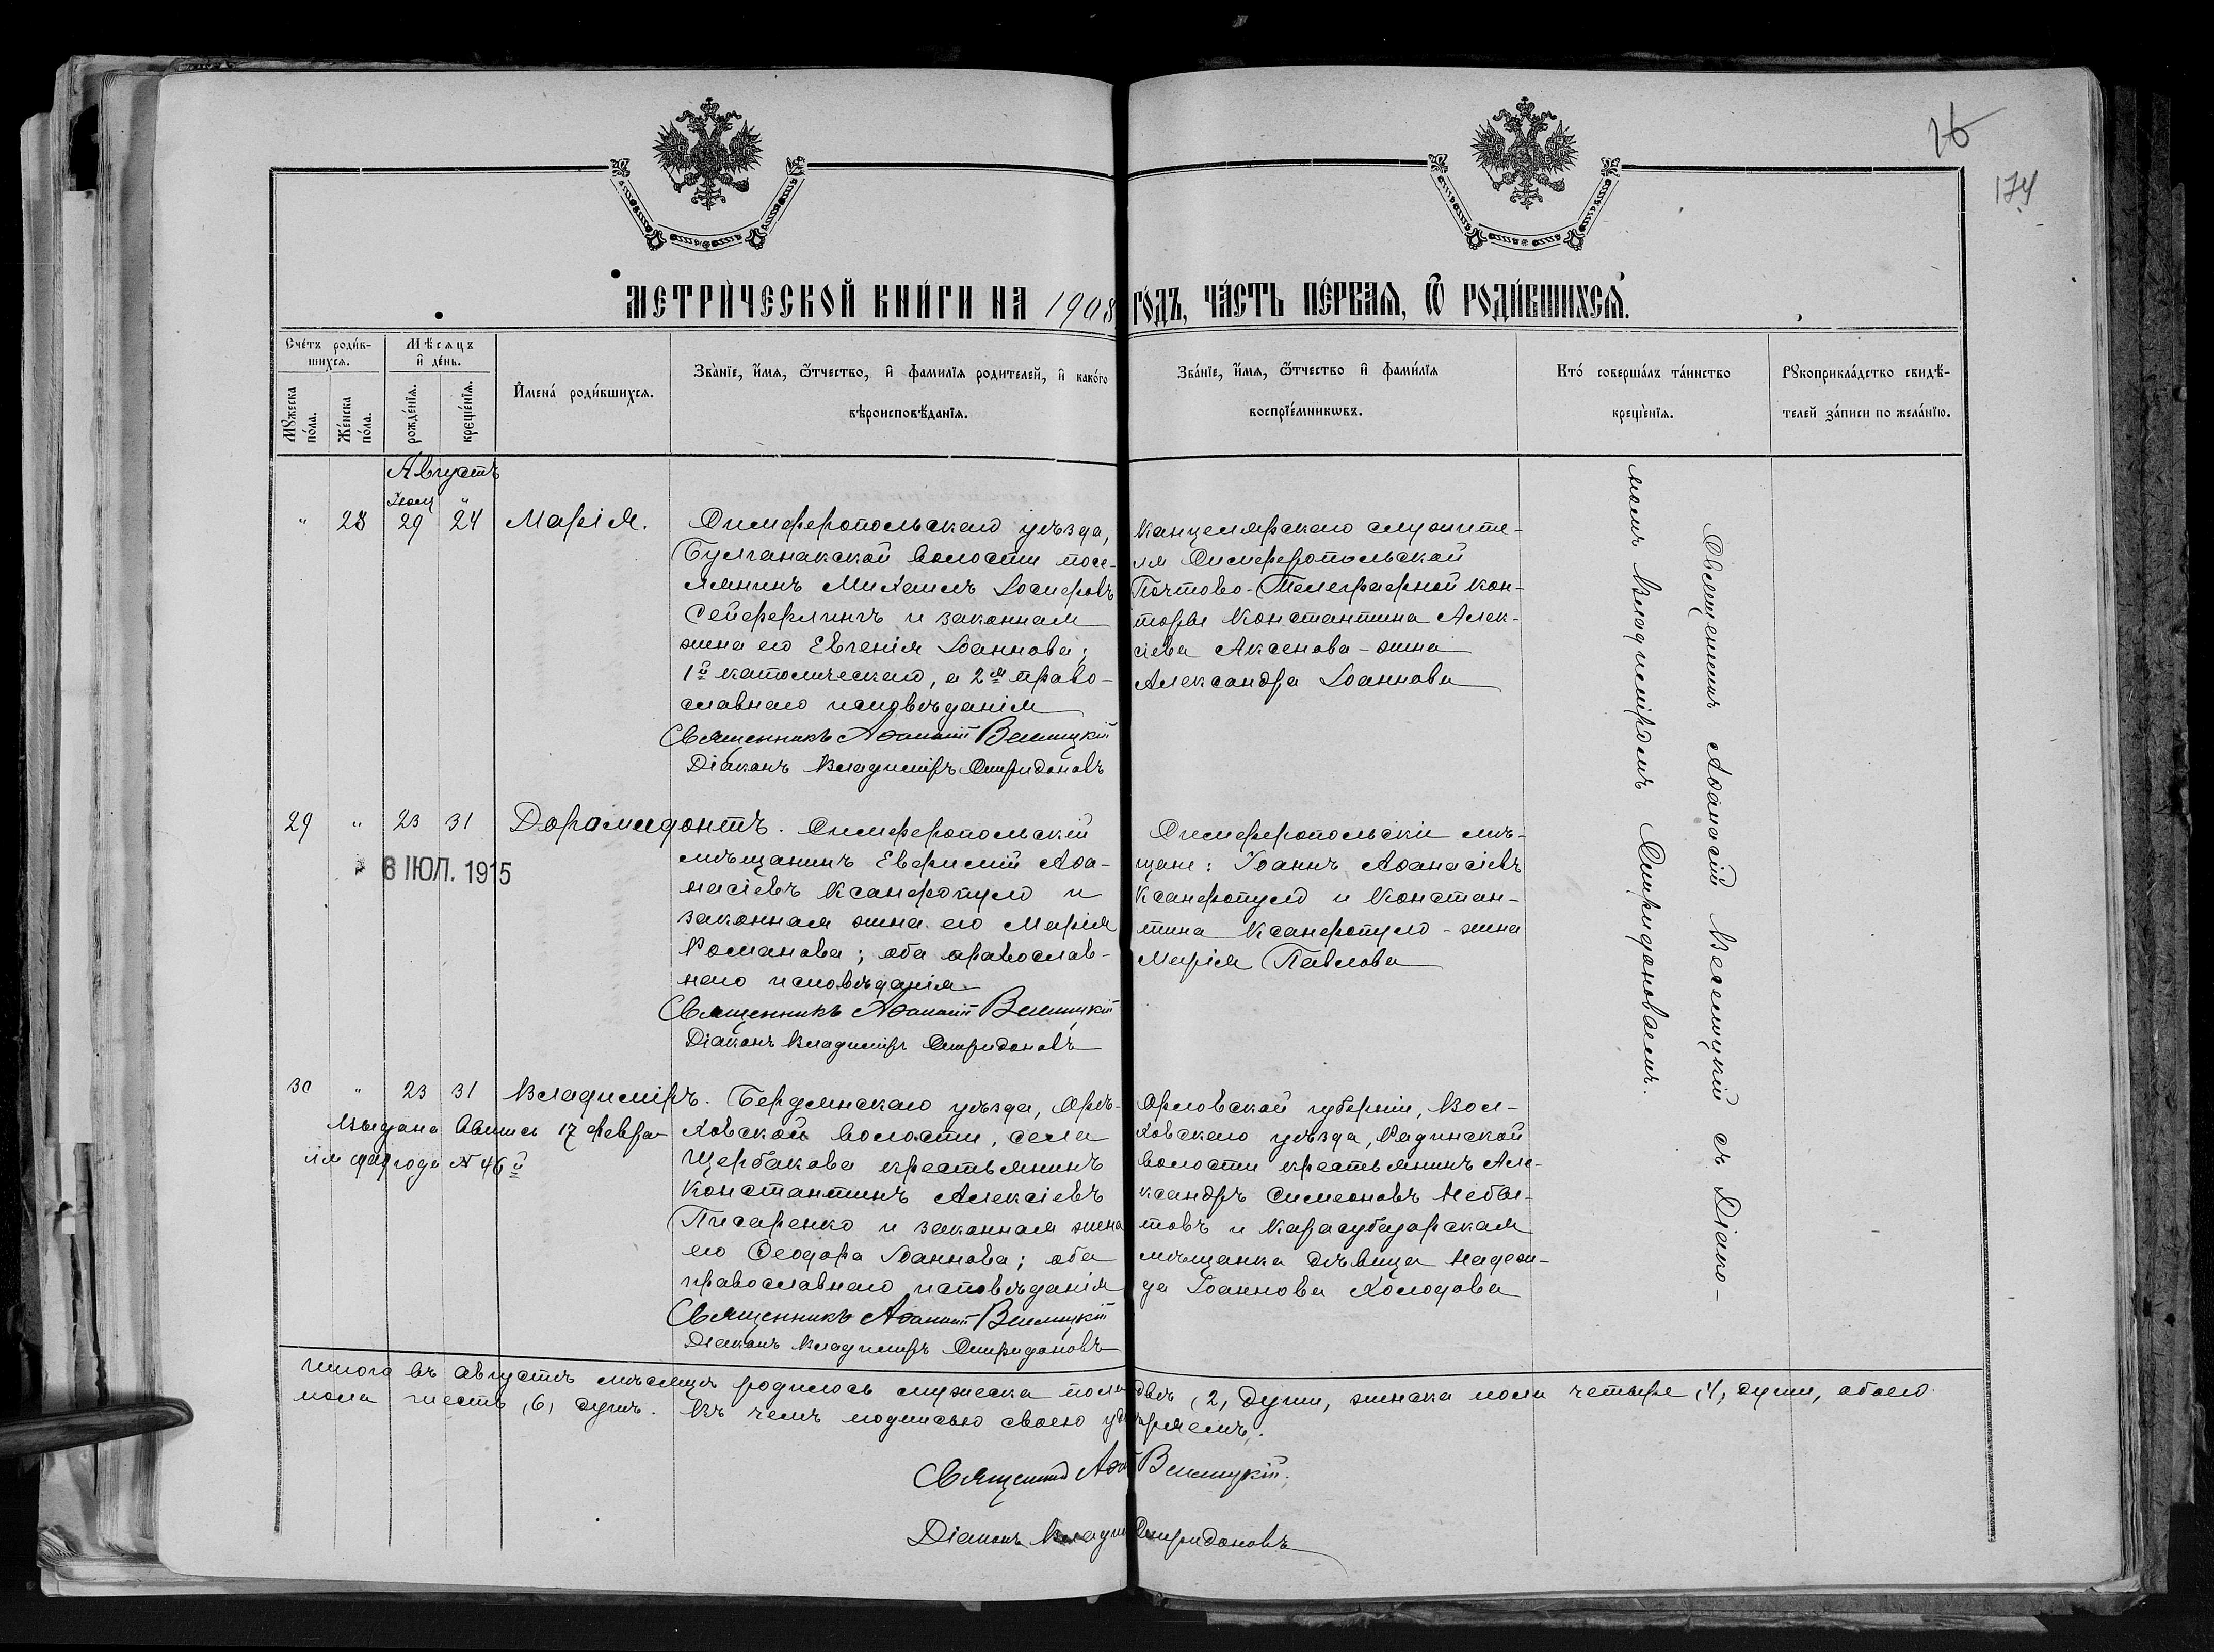 16
174
МЕТРИ́ЧЕСКОЙ КНИ́ГИ НА 1908 ГО́ДЪ, ЧА́СТЬ ПЕ́РВАѦ, Ѿ РОДИ́ВШИХСѦ.
Сче́тъ роди́в-
шихсѧ.
Мꙋжеска по́ла.
Же́нска по́ла.
Мѣ́сѧцъ
и҆ де́нь.
рожде́нїѧ.
креще́нїѧ.
И҆мена́ роди́вшихсѧ.
Зва́нїе, и҆́мѧ, ѻ҆́тчество, и҆ фами́лїѧ родителей, и҆ како́го
вѣроисповѣ́данїѧ.
Зва́нїе, и҆́мѧ, ѻ҆́тчество и҆ фами́лїѧ
воспрїе́мникѡвъ.
Кто́ соверша́лъ та́инство
креще́нїѧ.
Рꙋкоприкла́дство свидѣ́-
телей за́писи по жела́нїю.
Августъ
" 28 Іюля 29 " 24 Марія.
Симферопольскаго уѣзда,
Булганакской волости посе-
лянинъ Михаилъ Іосифовъ
Сейферлингъ и законная
жена его Евгенія Іоаннова;
1й католическаго, а 2ая право-
славнаго исповѣданія
Священникъ Аѳанасій Веселицкій
Діаконъ Владиміръ Спиридоновъ
Канцелярскаго служите-
ля Симферопольской
Почтово-Телеграфной кон-
торы Константина Алек-
сіева Аксенова - жена
Александра Іоаннова
Священникъ Аѳанасій Веселицкій съ Діако-
номъ Владиміромъ Спиридоновымъ.
29 " 23 31 Доримедонтъ.
6 ІЮЛ. 1915
Симферопольскій
мѣщанинъ Евфимій Аѳа-
насіевъ Ксанфопуло и
законная жена его Марія
Романова; оба православ-
наго исповѣданія
Священникъ Аѳанасій Веселицкій
Діаконъ Владиміръ Спиридоновъ
Симферопольскіе мѣ-
щане: Іоаннъ Аѳанасіевъ
Ксанфопуло и Констан-
тина Ксанфопуло - жена
Марія Павлова
30 " 23 31 Владиміръ.
Выдана выпись 17 Февра-
ля года № 46й
Бердянскаго уѣзда, Орѣ-
ховской волости, села
Щербакова крестьянинъ
Константинъ Алексіевъ
Писаренко и законная жена
его Ѳеодора Іоаннова; оба
православнаго исповѣданія
Священникъ Аѳанасій Веселицкій
Діаконъ Владиміръ Спиридоновъ
Орловской губерніи, Бол-
ховскаго уѣзда,
волости крестьянинъ Але-
ксандръ Симеоновъ
и Карасубазарская
мѣщанка дѣвица Надеж-
да Іоаннова Холодова
Итого въ августѣ мѣсяцѣ родилось мужеска пола двѣ (2) души, женска пола четыре (4) души, обоего
пола шесть (6) душъ. Въ чемъ подписью своею удостовѣряемъ:
Священникъ Аѳа Веселицкій.
Діаконъ Влади Спиридоновъ